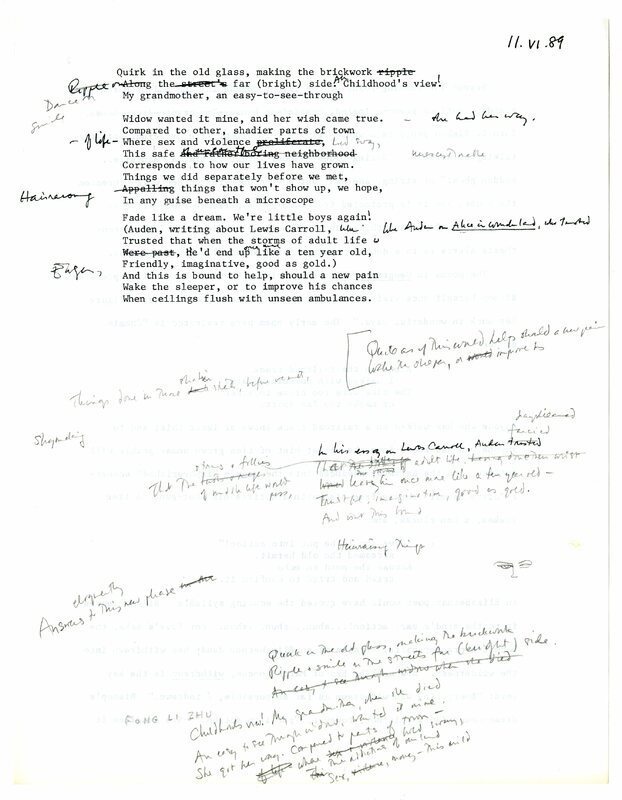 11.VI.89
Quirk in the old glass, making the brickwork ripple
Ripple Along the street's far (bright) side. Ah Childhood's view!
Dance
smile
My grandmother, an easy-to-see-through
Widow wanted it mine, and her wish came true. — she had her way.
Compared to other, shadier parts of town
— of life — Where sex and violence proliferate, hold sway,
This safe neighborhood
Corresponds to how our lives have grown.
Things we did separately before we met,
Hairraising Appalling things that won't show up, we hope,
In any guise beneath a microscope
Fade like a dream. We're little boys again!
(Auden, writing about Lewis Carroll, like Auden on Alice in Wonderland, who trusted
Trusted that when the storms of adult life
Were past, He'd end up once more like a ten year old,
Eager, Friendly, imaginative, good as gold.)
And this is bound to help, should a new pain
Wake the sleeper, or to improve his chances
When ceilings flush with unseen ambulances.
Quite as if this would help should a new pain
Wake the sleeper, or would improve his
Things done in those states before we met,
daydreamed
fancied
In his essay on Lewis Carroll, Auden trusted
storms & follies
That the
of adult life would
pass,
That the storms of adult life
leave him once more like a ten year old —
Trustful, imaginative, good as gold.
And won't this
Hairraising things
eloquently
Answers to this new phase
Quirk in the old glass, making the brickwork
Ripple & smile in the streets far (bright) side.
An easy to see through widow when she died
FONG LI ZHU
Childhoods view! My grandmother, when she died
An easy to see through widow, wanted it mine.
She got her way. Compared to parts of town —
of life — where hold sway,
the addictions of
Sex, violence, money — this mild